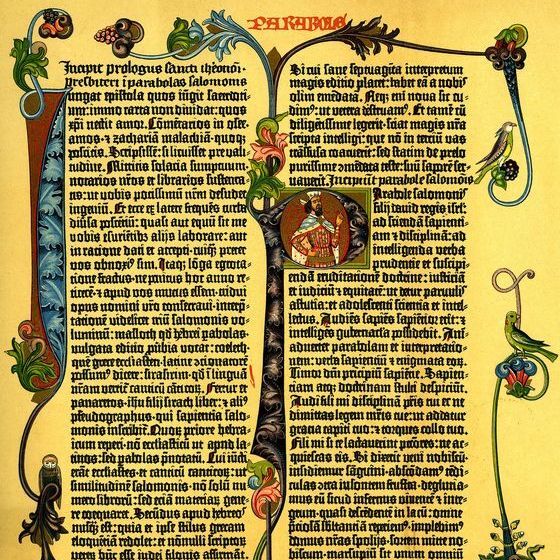 PARABOLE
Incipit prologus sancti iheronimi
presbiteri i parabolas salomonis
iungat epistola quos iūgit sacerdoci-
um: immo carta non dividat: quos
xp̄i nectit amor. Cōmētarios in osee.
amos. ⁊ zachariā malachiā quoq;
poscitis. Scripsissē: si licuisset pre vali-
tudine. Mittitis solacia sumptuum.
notarios nr̄os et librarios sustenta-
tis: ut vobis potissimū nr̄m desudet
ingeniū. Et ecce ex latere frequēs turba
diūsa poscētiū: quasi aut equū sit me
vobis esurientib; aliis laborare: aut
in racione dati et accepti cuiq̄ preter
vos obnoxi⁹ sim. Itaq; lōga egrota-
tione fractus · ne penitus hoc anno re-
ticerē · ⁊ apud vos mutus essem · tridui
opus nomini vr̄o consecraui · interp̄-
tationē videlicet triū salomonis vo-
luminū: masloth qd̄ hebrei pabolas ·
vulgata editio ꝓūbia vocat: coeleth ·
quē grece ecclesiasten · latine ↄcionatorē
possum⁹ dicere: sirasirim · qd̄ ī linguā
nr̄am vertit̄ canticū cāticoꝝ. Fertur et
panaretos · ihu filii sirach liber: ⁊ ali⁹
pseudographus · qui sapientia salo-
monis inscribit̄. Quoꝝ priorē hebra-
icum reperi · nō ecclesiasticū ut apud la-
tinos: sed pabolas p̄notatū. Cui iūcti
erāt ecclesiastes · et canticū canticoꝝ: ut
similitudinē salomonis · nō solū nu-
mero libroꝝ: sed etiā materiaꝝ gene-
re coequaret. Secūdus apud hebreos
nusq̄ est: quia et ipse stilus grecam
eloquētiā redolet: et nonnulli scriptoꝝ
veteꝝ hūc esse iudei filonis affirmāt.
Si cui sane septuaginta interpretum
magis editio placet: habet eā a nobis
olim emēdatā. Neq; eni nova sic cu-
dim⁹: ut vetera destruam⁹. Et tamē cū
diligētissime legerit · sciat magis nr̄a
scripta intelligi: que nō in terciū vas
trāsfusa coacuerīt: sed statim de prelo
purissime ↄmēdata teste: suū saporē ser-
vauerīt. Incipiunt parabole salomōis
Parabole salomonis
filii dauid regis isrl̄:
ad sciendā sapienti-
am ⁊ disciplinā: ad
intelligenda verba
prudentie et suscipi-
endā eruditationē doctrine: iusticiā
et iudiciū ⁊ equitatē: ut detur paruulis
astutia: et adolescenti scientia et intel-
lectus. Audiēs sapiēs sapiētior erit: ⁊
intelligēs gubernacula possidebit. Ani-
aduertet parabolam et interpretatio-
nem: verba sapientiū ⁊ enigmata eoꝝ.
Timor dn̄i principiū sapiētie. Sapien-
tiam atq; doctrinam stulti despiciūt.
Audi fili mi disciplinā pr̄is tui et ne
dimittas legem mr̄is tue: ut addatur
gracia capiti tuo: ⁊ torques collo tuo.
Fili mi si te lactauerint p̄ctores: ne ac-
quiescas eis. Si dixerīt veni nobiscū ·
insidiemur sāguini · abscōdam⁹ tēdi-
culas ↄtra insontem frustra · deglutia-
mus eū sicud infernus viuentē ⁊ inte-
grum · quasi descendentē in lacū: omnē
p̄ciosā substanciā reperiem⁹ · implebim⁹
domus nr̄as spoliis · sortem mitte no-
biscum · marsupiū sit unum omniū